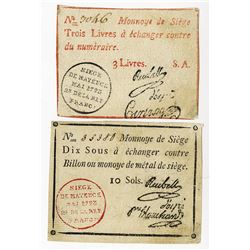 No. 3046 Monnoye de Siège
Trois Livres à échanger contre
du numéraire.
3 Livres. S. A.
SIEGE
DE MAYENCE
MAI 1793
2e DE LA REP
FRANÇ.
Reubell
No. 35380 Monnoye de Siège
Dix Sous à échanger contre
Billon ou monoye de métal de siège.
10 Sols. Reubell
SIEGE
DE MAYENCE
MAI 1793
2e DE LA REP
FRANÇ.